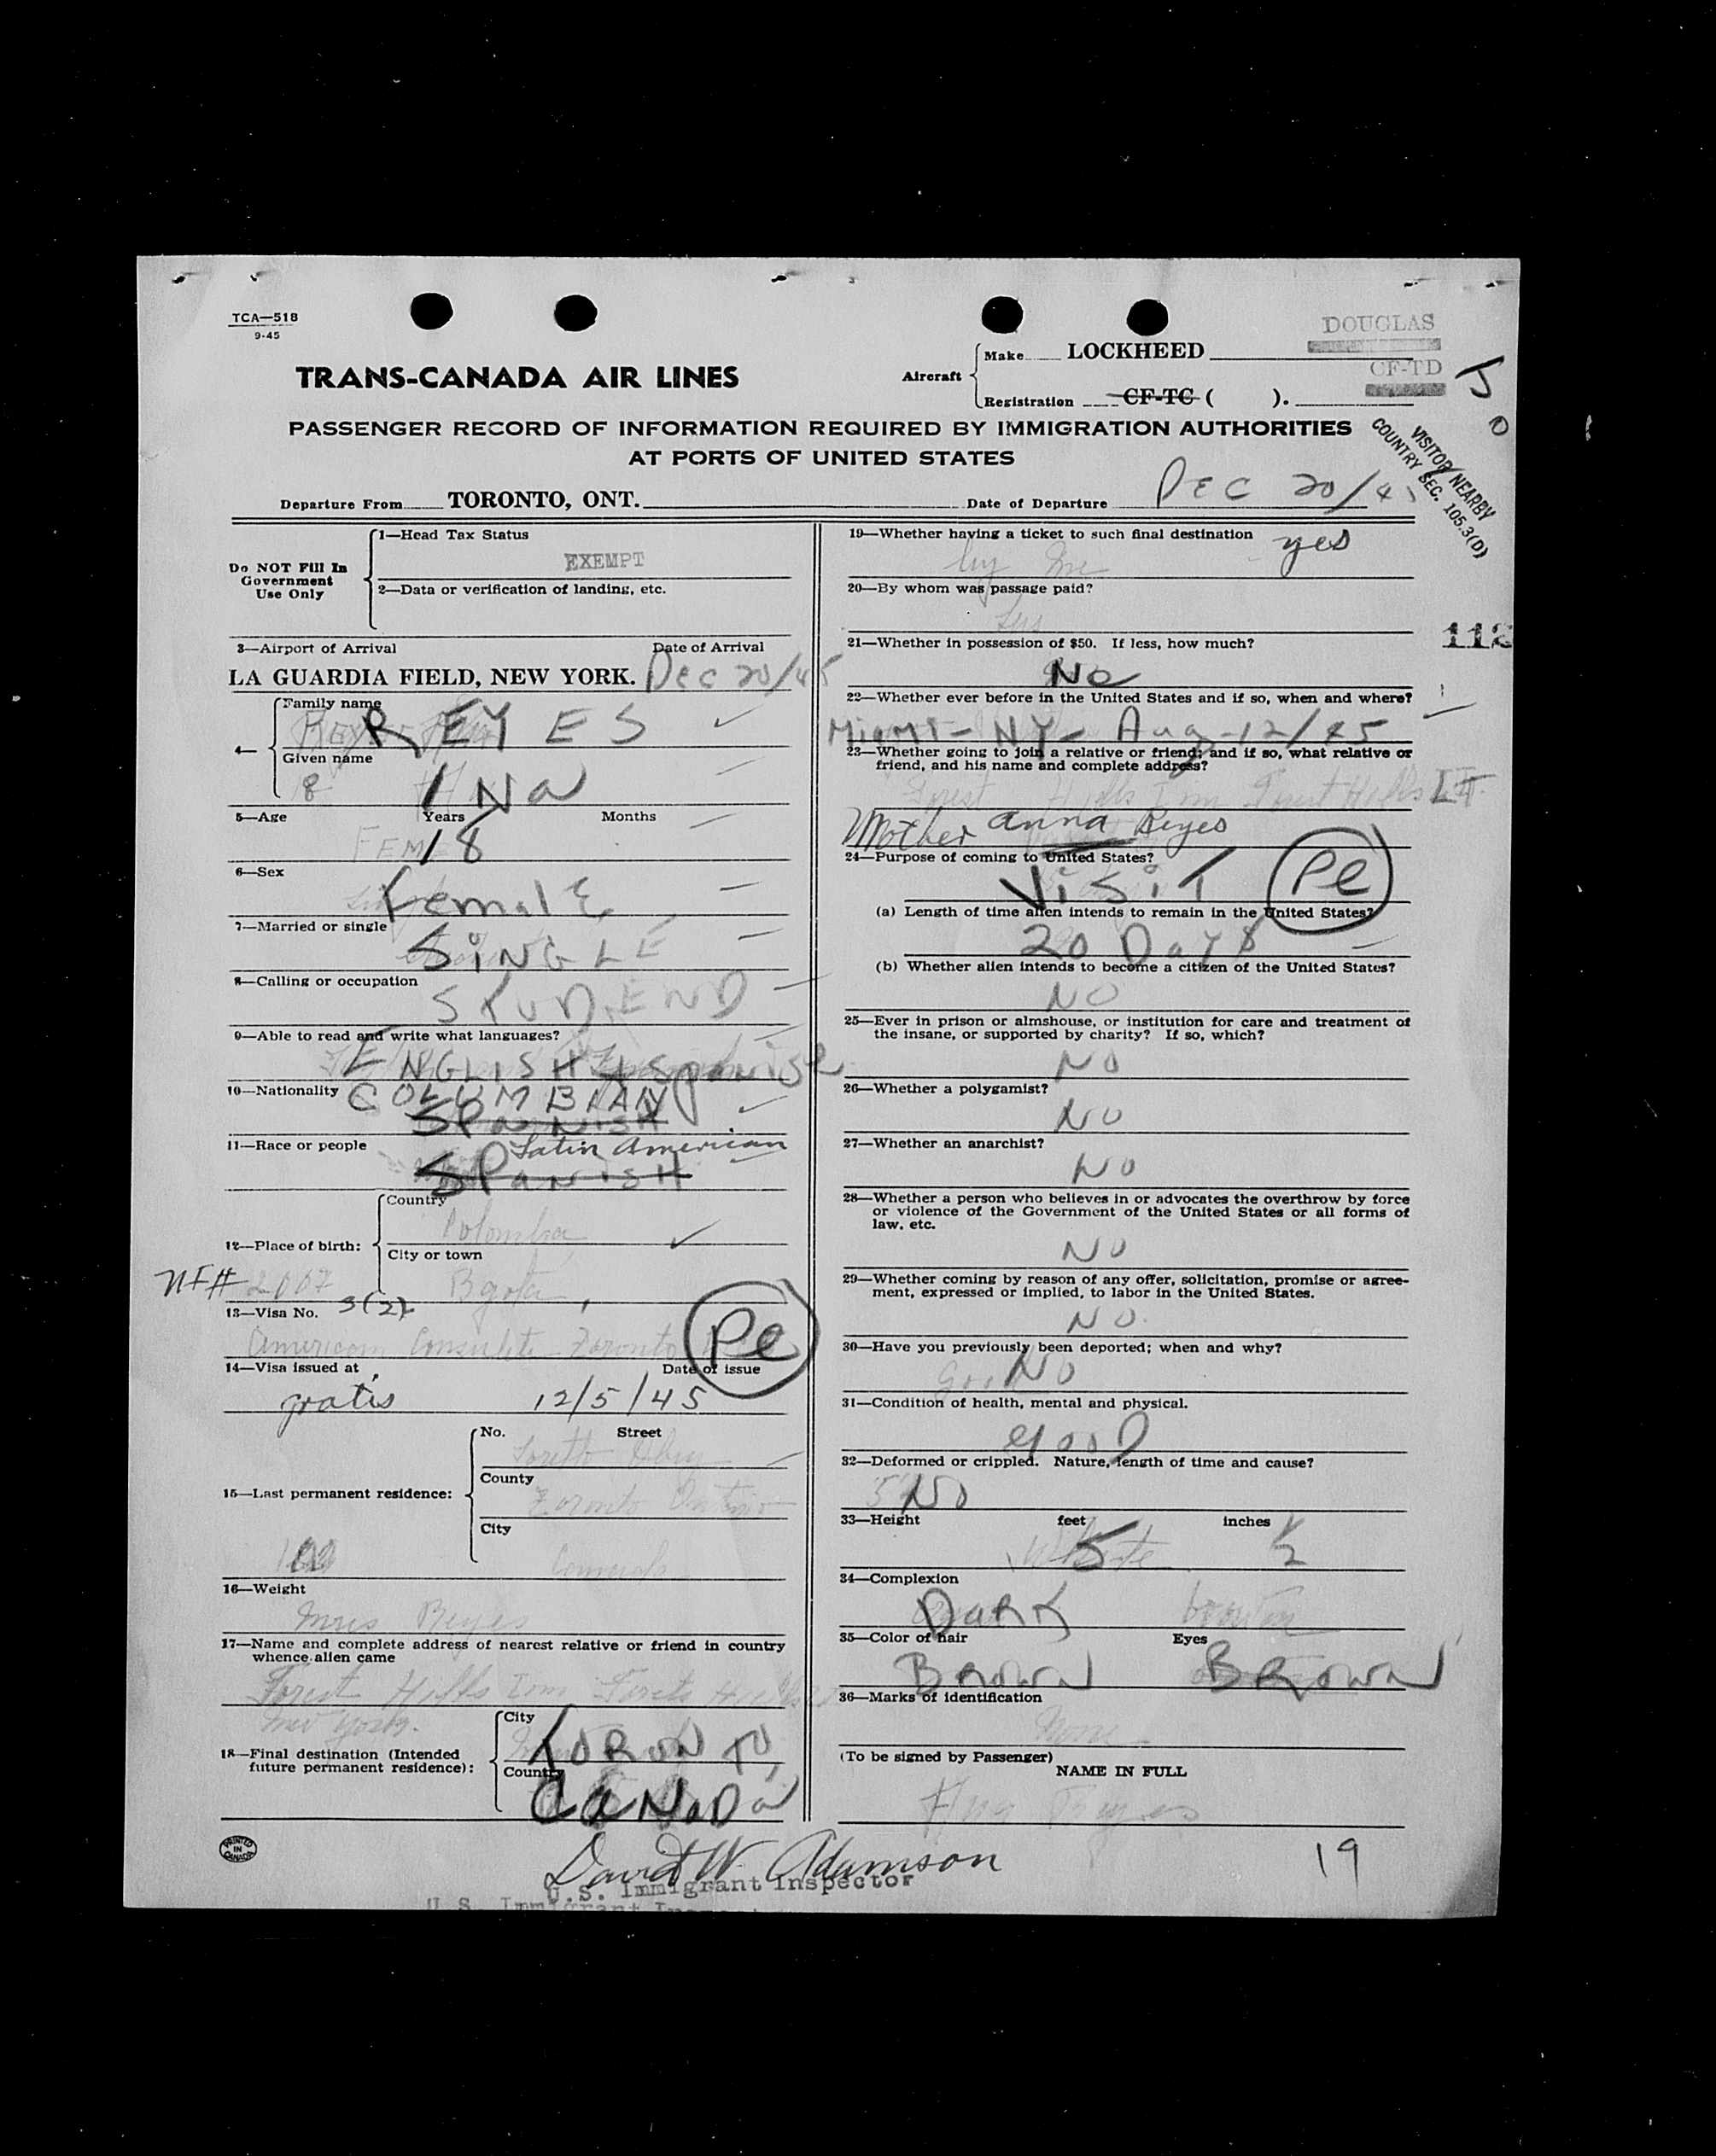 TCA—518
9-45
TRANS-CANADA AIR LINES
Aircraft
Make LOCKHEED
DOUGLAS
Registration CF-TC ( ).
CF-TD
PASSENGER RECORD OF INFORMATION REQUIRED BY IMMIGRATION AUTHORITIES
AT PORTS OF UNITED STATES
VISITOR NEARBY
COUNTRY SEC. 105.3(D)
Departure From TORONTO, ONT. Date of Departure DEC 20/45
Do NOT Fill In
Government
Use Only
1—Head Tax Status
EXEMPT
2—Data or verification of landing, etc.
3—Airport of Arrival Date of Arrival
LA GUARDIA FIELD, NEW YORK. Dec 20/45
4—
Family name
REYES
Given name
8
INa
5—Age Years Months
FEM 18
6—Sex
FemalE
7—Married or single
SiNGLE
8—Calling or occupation
STUDEND
9—Able to read and write what languages?
ENGLISH
10—Nationality COLUMBIAN
SPANISH
11—Race or people Latin American
SPANISH
12—Place of birth:
Country
Colombia
City or town
Bgota,
NF# 2007
13—Visa No. 3(2)
American Consulate Toronto
Pe
14—Visa issued at Date of issue
gratis 12/5/45
15—Last permanent residence:
No. Street
Loretto Abey
County
Toronto Ontario
City
Canada
100
16—Weight
Reyes
17—Name and complete address of nearest relative or friend in country
whence alien came
Forest Hills Inn
New York.
18—Final destination (Intended
future permanent residence):
City
TORONTO,
Country
CANADa
19—Whether having a ticket to such final destination yes
by me
20—By whom was passage paid?
21—Whether in possession of $50. If less, how much?
118
No
22—Whether ever before in the United States and if so, when and where?
MiaMi - NY - Aug - 12/45
23—Whether going to join a relative or friend; and if so, what relative or
friend, and his name and complete address?
Forest Hills Inn Forest Hills LI
Mother anna Reyes
24—Purpose of coming to United States?
ViSiT
Pe
(a) Length of time alien intends to remain in the United States?
20 DayS
(b) Whether alien intends to become a citizen of the United States?
NO
25—Ever in prison or almshouse, or institution for care and treatment of
the insane, or supported by charity? If so, which?
NO
26—Whether a polygamist?
NO
27—Whether an anarchist?
NO
28—Whether a person who believes in or advocates the overthrow by force
or violence of the Government of the United States or all forms of
law, etc.
NO
29—Whether coming by reason of any offer, solicitation, promise or agree-
ment, expressed or implied, to labor in the United States.
NO
30—Have you previously been deported; when and why?
NO
31—Condition of health, mental and physical.
gooD
32—Deformed or crippled. Nature, length of time and cause?
NO
33—Height feet inches
White 5 1/2
34—Complexion
DaRK brown
35—Color of hair Eyes
BROWN BROWN
36—Marks of identification
None
(To be signed by Passenger)
NAME IN FULL
Reyes
PRINTED
IN
CANADA
David W. Adamson
U.S. Immigrant Inspector
19